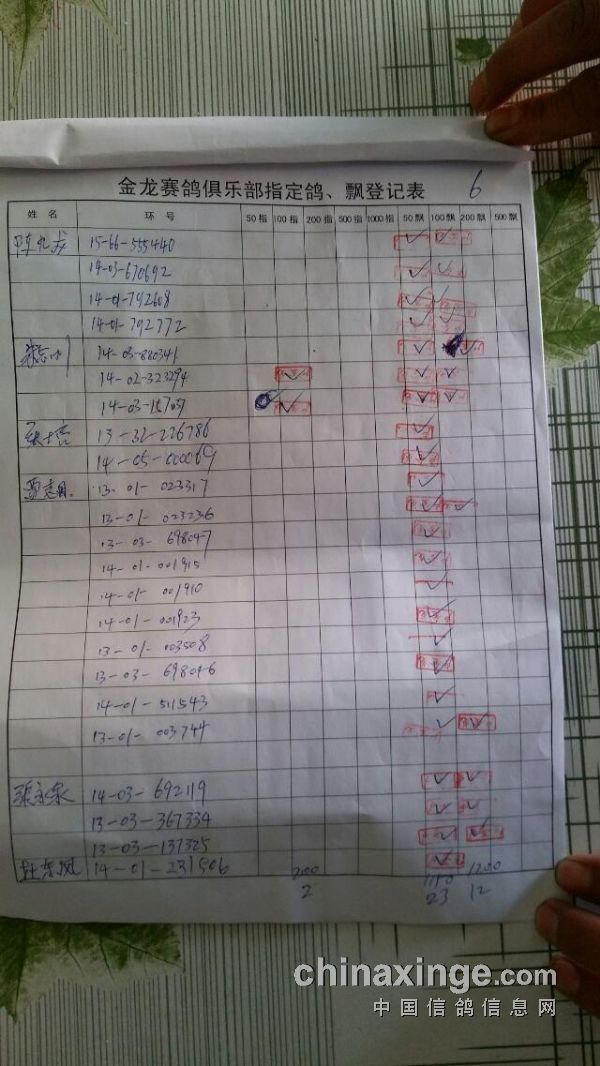 金龙赛鸽俱乐部指定鸽、飘登记表 6
姓名 环号 50指 100指 200指 500指 1000指 50飘 100飘 200飘 500飘
15-66-555440
14-03-670692
14-01-792608
14-01-792772
14-03-880341
14-02-323294
14-03-
13-32-226786
14-05-000069
13-01-023317
13-01-023236
13-03-698047
14-01-001915
14-01-001910
14-01-001923
13-01-003508
13-03-698046
14-01-511543
13-01-003744
张永泉 14-03-692119
13-03-367334
13-03-137325
杜荣凤 14-01-231506
200 1150 1200
2 23 12
chinaxinge.com
中国信鸽信息网